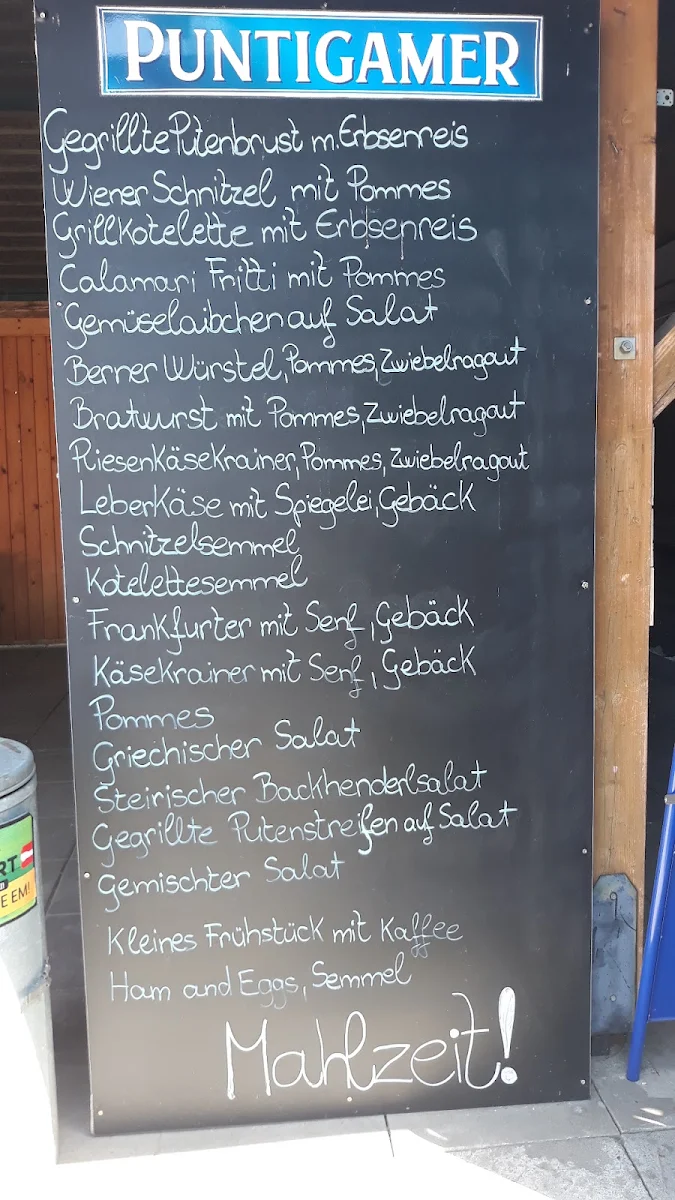 PUNTIGAMER
Gegrillte Putenbrust m. Erbsenreis
Wiener Schnitzel mit Pommes
Grillkotelette mit Erbsenreis
Calamari Fritti mit Pommes
Gemüselaibchen auf Salat
Berner Würstel, Pommes, Zwiebelragout
Bratwurst mit Pommes, Zwiebelragout
Riesenkäsekrainer, Pommes, Zwiebelragout
Leberkäse mit Spiegelei, Gebäck
Schnitzelsemmel
Kotelettesemmel
Frankfurter mit Senf, Gebäck
Käsekrainer mit Senf, Gebäck
Pommes
Griechischer Salat
Steirischer Backhenderlsalat
Gegrillte Putenstreifen auf Salat
Gemischter Salat
Kleines Frühstück mit Kaffee
Ham and Eggs, Semmel
Mahlzeit!
EM!